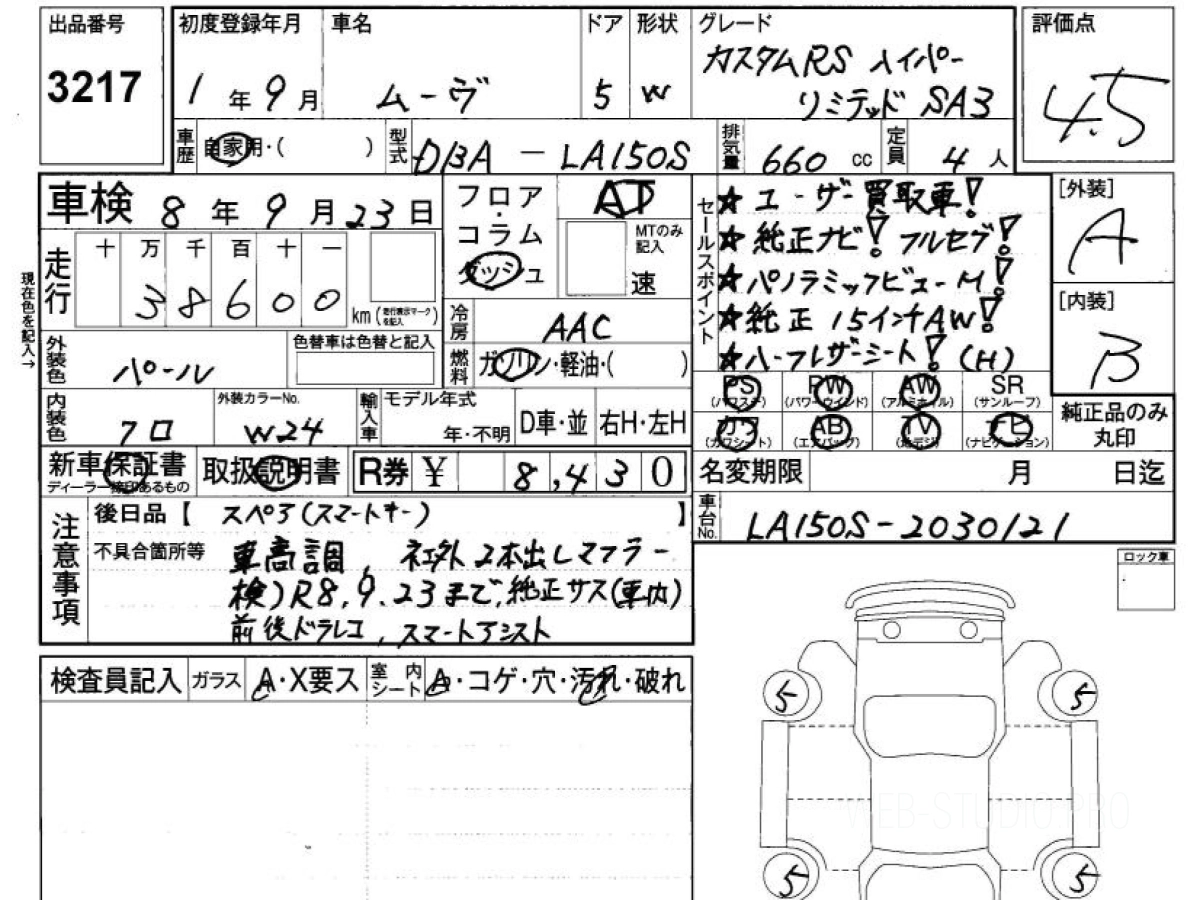 出品番号
3217
初度登録年月 1年9月
車名 ムーヴ
ドア 5
形状 W
グレード カスタムRS ハイパー
リミテッド SA3
評価点
4.5
車歴 自家用・( )
型式 DBA - LA150S
排気量 660 cc
定員 4人
車検 8年9月23日
フロア・コラム
ダッシュ
AT
MTのみ記入
速
走行
十 万 千 百 十 一
3 8 6 0 0 km (走行表示マークを記入)
現在色を記入→
冷房 AAC
燃料 ガソリン・軽油・( )
外装色 パール
色替車は色替と記入
内装色 クロ
外装カラーNo. W24
輸入車
モデル年式
年・不明
D車・並
右H・左H
セールスポイント
★ユーザー買取車!
★純正ナビ! フルセグ!
★パノラミックビューM!
★純正15インチAW!
★ハーフレザーシート! (H)
[外装]
A
[内装]
B
PS (パワステ)
PW (パワーウインド)
AW (アルミホイル)
SR (サンルーフ)
カワ (カワシート)
AB (エアバック)
TV (地デジ)
ナビ (ナビゲーション)
純正品のみ
丸印
新車保証書
ディーラー捺印あるもの
取扱説明書
R券 ¥ 8,430
名変期限 月 日迄
車台No. LA150S-2030121
注意事項
後日品【 スペア(スマートキー) 】
不具合箇所等 車高調, 社外2本出しマフラー
検)R8.9.23まで,純正サス(車内)
前後ドラレコ,スマートアシスト
ロック車
検査員記入
ガラス A・X要ス
室内シート A・コゲ・穴・汚れ・破れ
5 5
5 5
WEB-STUDIO.PRO